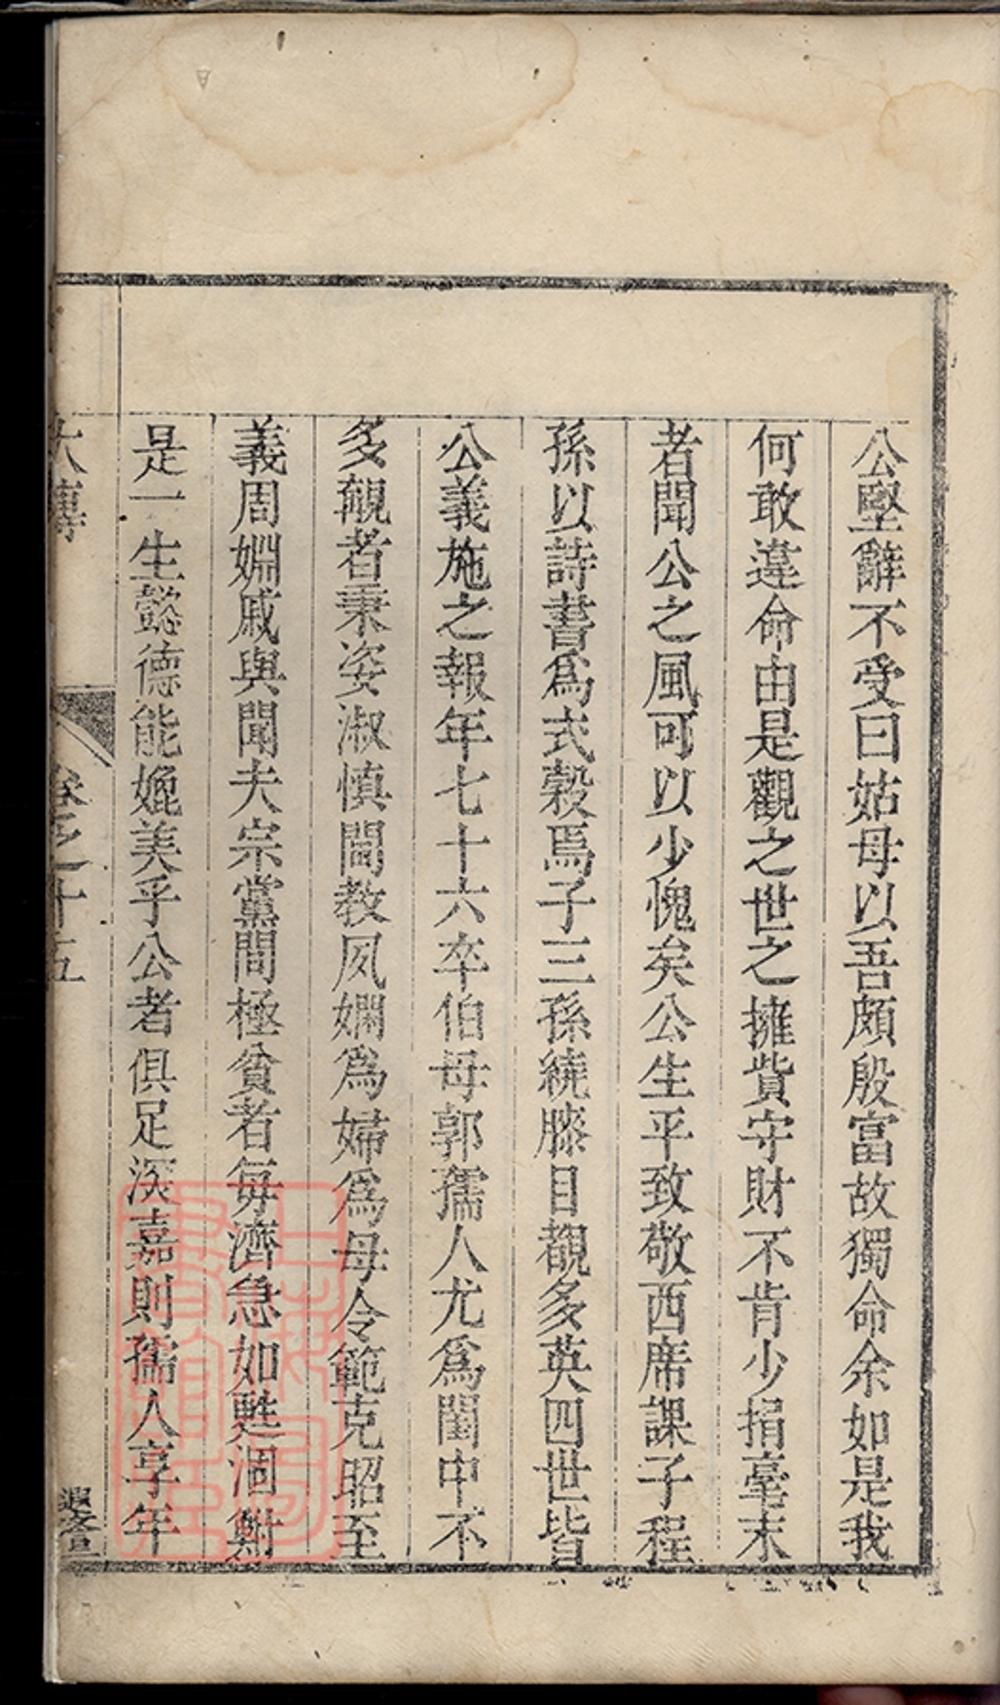 公堅辭不受曰姑母以吾頗殷富故獨命余如是我
何敢違命由是觀之世之擁貲守財不肯少捐毫末
者聞公之風可以少愧矣公生平致敬西席課子程
孫以詩書為式穀焉子三孫繞膝目覩多英四世皆
公義施之報年七十六卒伯母郭孺人尤為閨中不
多覩者秉姿淑慎閫教夙嫻為婦為母令範克昭至
義周婣戚與聞夫宗黨間極貧者每濟急如甦涸鮒
是一生懿德能媲美乎公者俱足深嘉則孺人享年
大傳
卷之十五